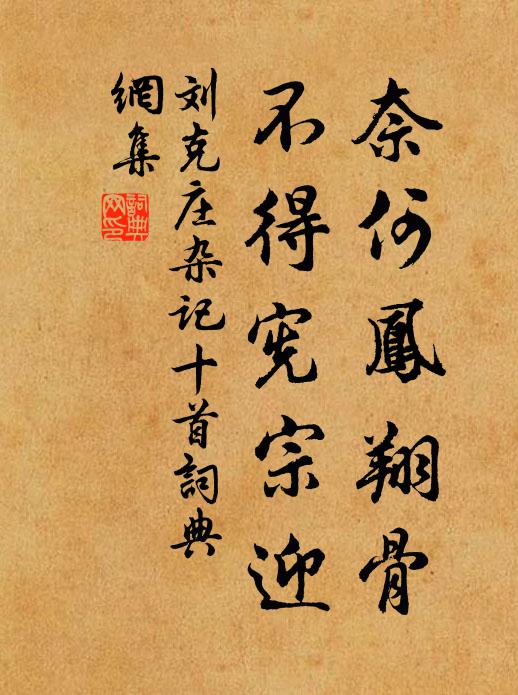 奈何鳳翔骨
不得宪宗迎
刘克庄杂记十首詞典
網集
詞典
网印